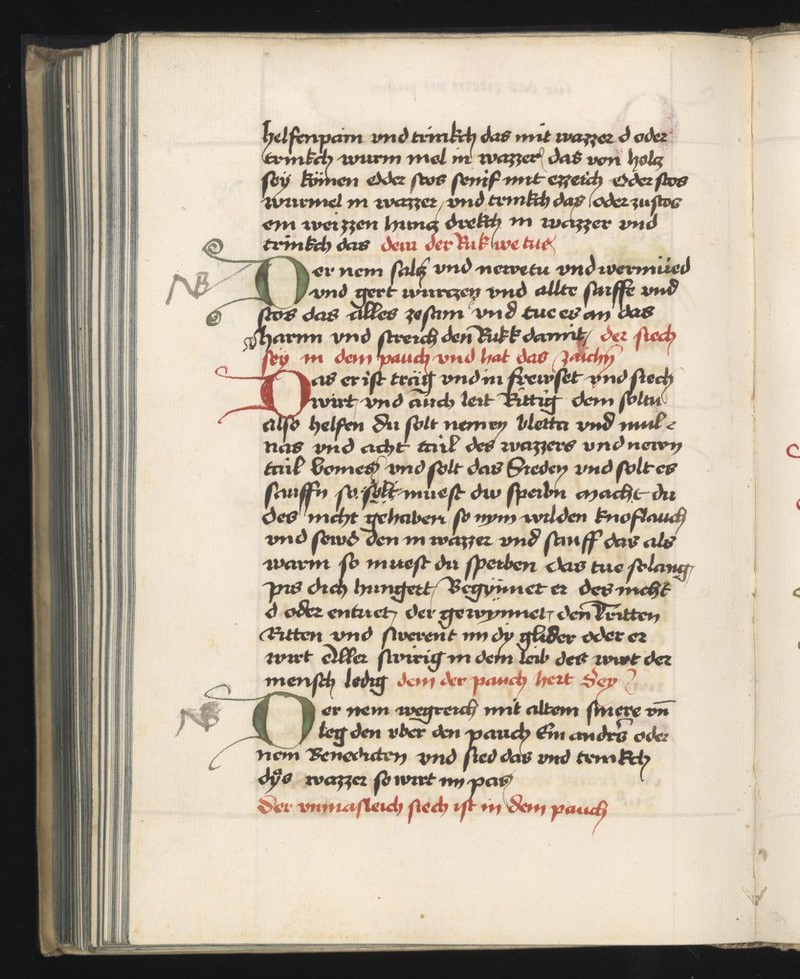 helfenpain vnd trinkch das mit wazzer d oder
trinkch wurm mel in wazzer das von holcz
sey komen Oder stos senif mit ezzeich Oder stos
wurmel in wazzer vnd trinkch das oder zustos
ein weizzen huncz drekch in wazzer vnd
trinkch das dem der Rukk we tue
Der nem salcz vnd newetu vnd wermued
vnd gert wurczen vnd allte saiffe vnd
stos das alles zesam vnd tue es an das
harm vnd streich den Rukk damit der siech
sey in dem pauch vnd hat das zaichn
Das er ist träg vnd in frewset vnd siech
wirt vnd auch leit Rittig dem soltu
also helfen du solt nemen bletta vnd mul
nas vnd acht tail des wazzers vnd newn
tail vnd solt das Sieden vnd solt es
sauffn so solt muest dw speibn macht du
des nicht gehaben so nym wilden knoflauch
vnd sewd den in wazzer vnd sauff das als
warm so muest du speiben das tue solang
pis dich hungert Begynnet er des nicht
d oder entuet der gewynnet den Tritten
Ritten vnd swerent im dy glider oder er
wirt Aller swirig in dem leib des wirt der
mensch ledig dem der pauch hert Sey
Der nem wegreich mit altem smere vn
leg den vber den pauch Ein anders oder
nem Benedicten vnd sied das vnd trinkch
dys wazzer so wirt im pas
Der vnmasleich siech ist in dem pauch
NB
NB